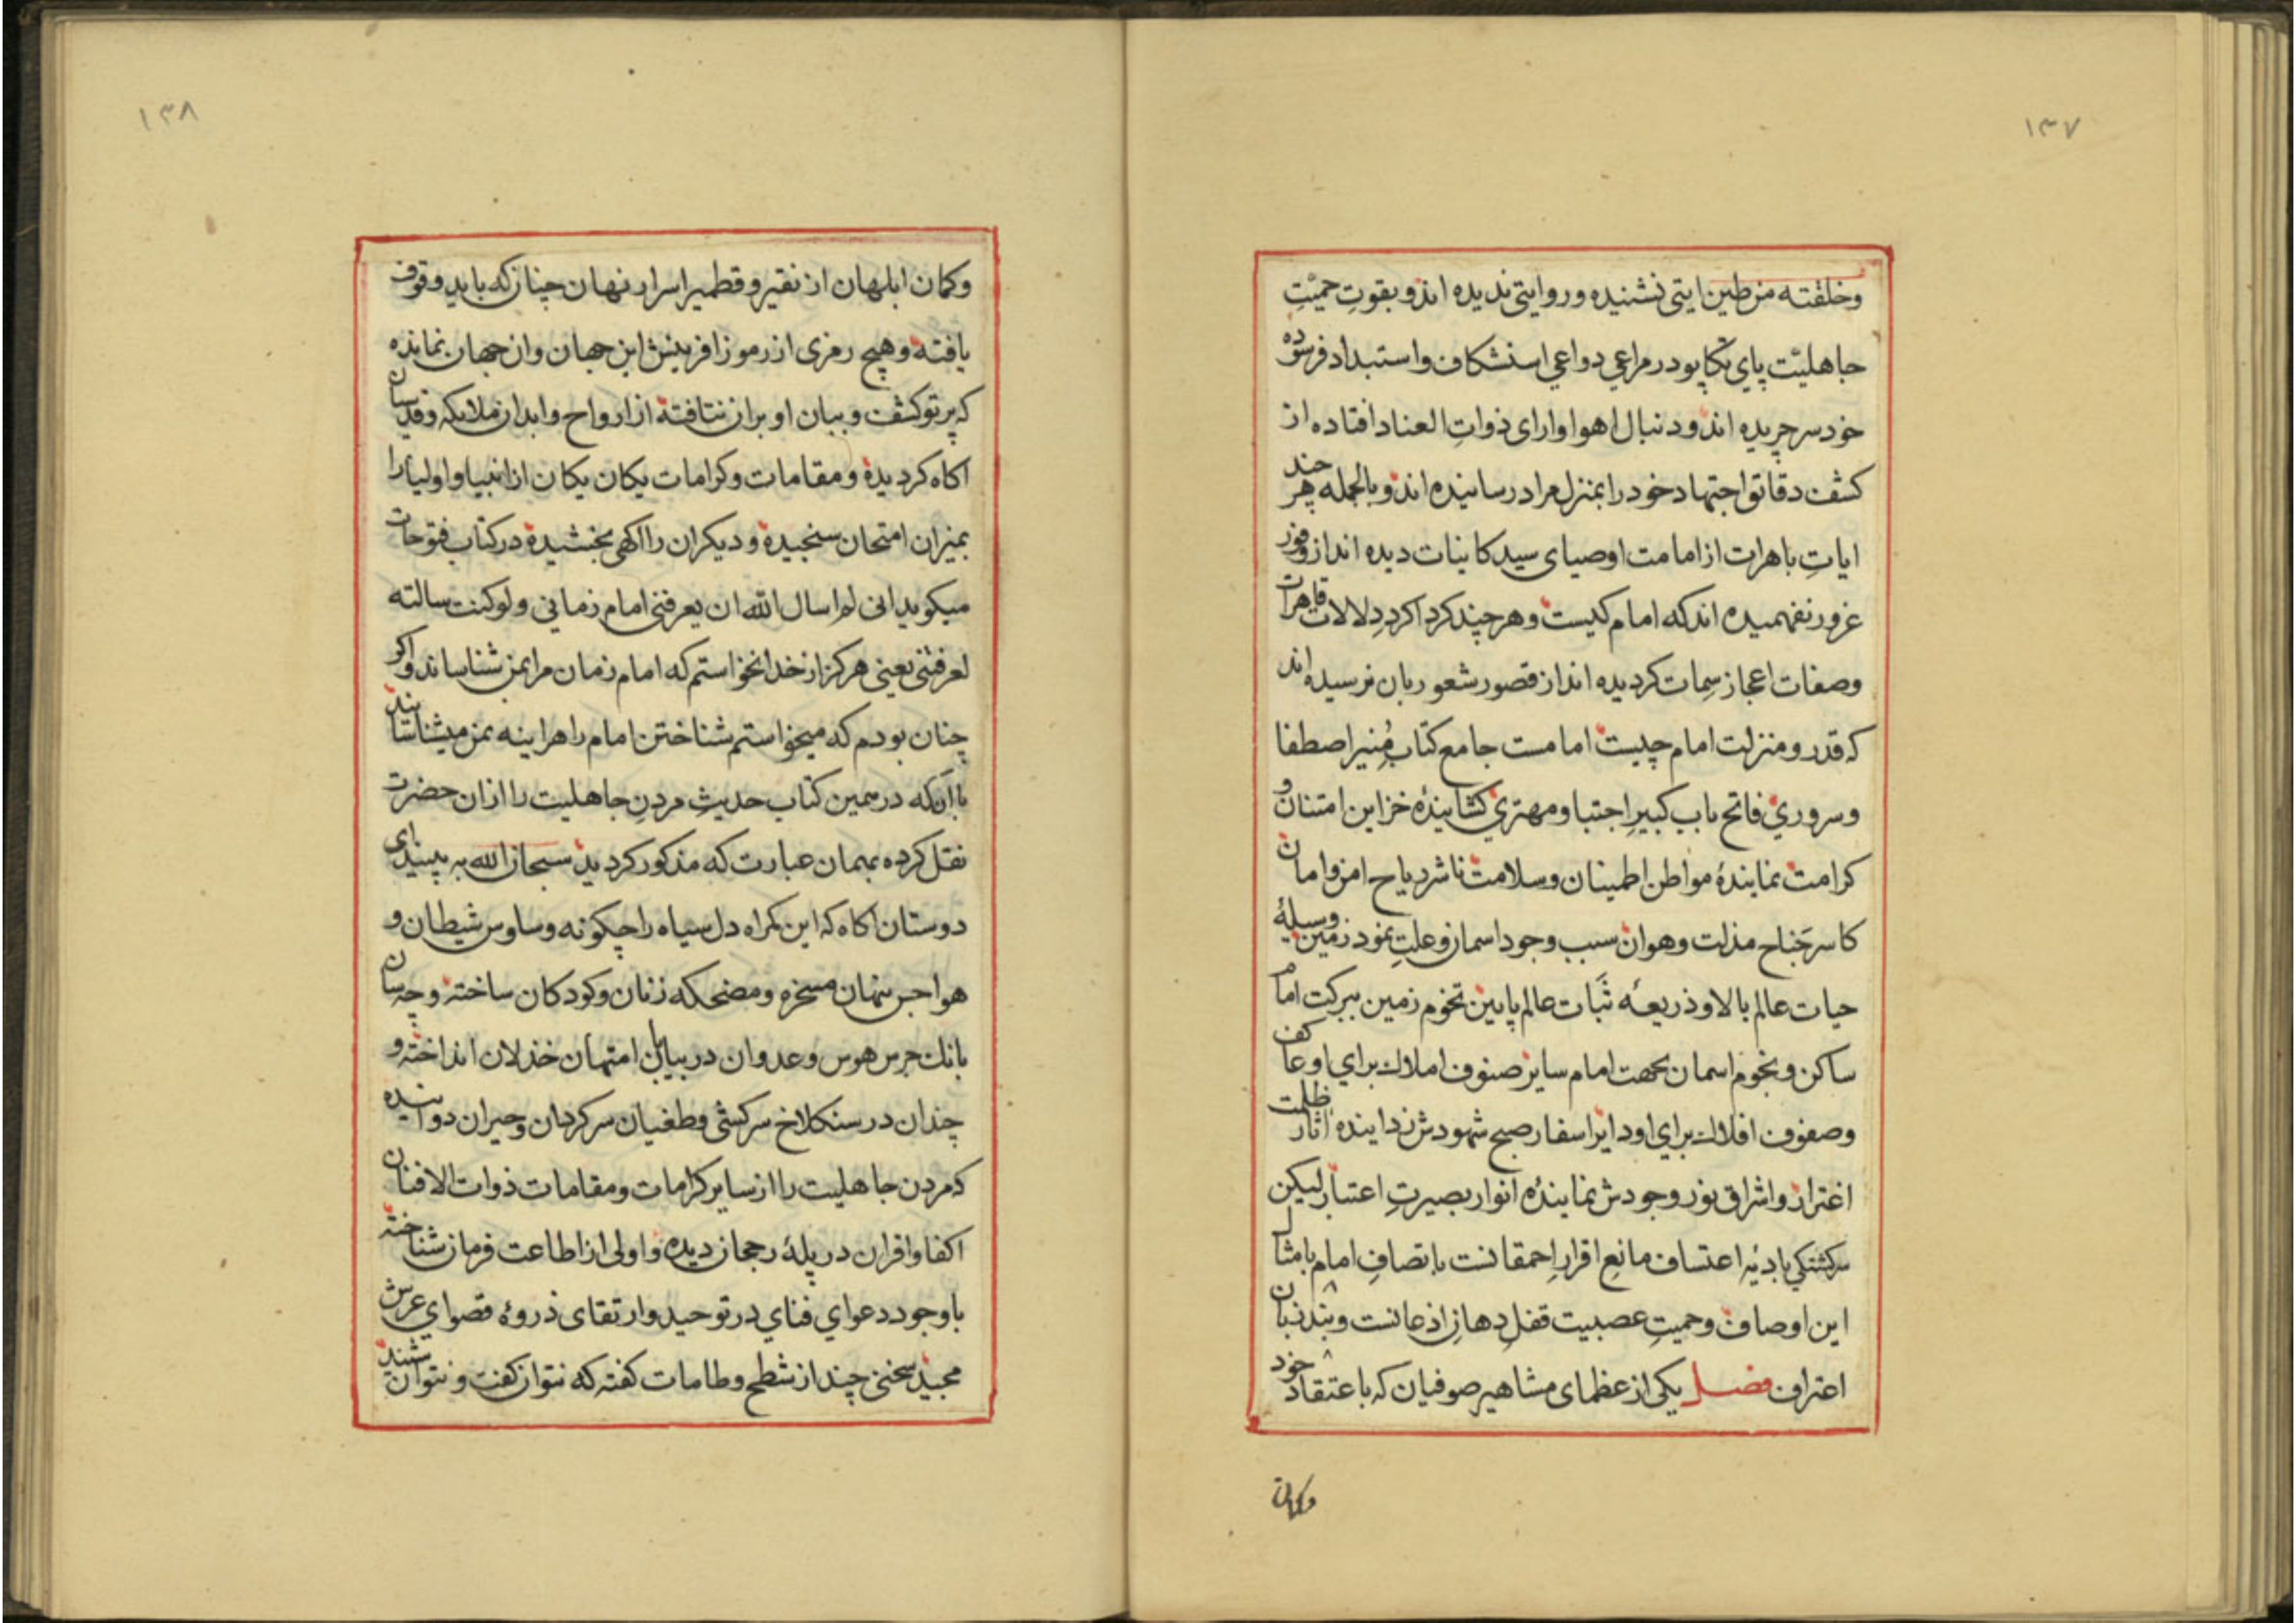 ۱۳۷
وخلقته من طین ایتی نشنیده وروایتی ندیده اند و بقوتِ حمیّتِ
جاهلیّت پای تکاپو در مراعی دواعی استنکاف واستبداد فرسوده
خودسر چریده اند و دنبال اهوا وارای ذواتِ العناد افتاده از
کشف دقائق اجتهاد خود را بمنزل مراد رسانیده اند و بالجمله هر چند
ایاتِ باهرات از امامت اوصیای سید کاینات دیده اند از وفور
غرور نفهمیده اند که امام کیست و هر چند کرد اکردِ دلالات قاهرات
وصفات اعجاز سِمات کردیده اند از قصور شعور بان نرسیده اند
که قدر و منزلت امام چیست امامست جامع کتاب مُنیر اصطفا
و سروری فاتح باب کبیرِ اجتبا و مهتری کشایندهٔ خزاین امتنان و
کرامت نمایندهٔ مواطن اطمینان وسلامت ناشر ریاح امن وامان
کاسر جَناح مذلت وهوان سبب وجود اسمان وعلتِ نمود زمین وسیلهٔ
حیات عالم بالا و ذریعهٔ ثَبات عالم پایین تخوم زمین ببرکت امام
ساکن و نجوم اسمان بجهت امام سایر صنوف املاک برای او عاکف
وصفوف افلاک برای او دایر اسفار صبح شهودش زدایندهٔ اثار ظلمت
اغترار و اشراق نور وجودش نمایندهٔ انوار بصیرتِ اعتبار لیکن
سرکشتکی بادیهٔ اعتساف مانعِ اقرارِ احمقانست باتصافِ امام بامثال
این اوصاف وحمیتِ عصبیت قفلِ دهانِ اذعانست و بند زبان
اعتراف فصل یکی از عظمای مشاهیر صوفیان که باعتقاد خود
وکمان
۱۳۸
وکمان ابلهان از نقیر و قطمیر اسرار نهان چنان که باید وقوف
یافته و هیچ رمزی از رموز افرینش این جهان وان جهان نمانده
که پرتو کشف و بیان او بران نتافته از ارواح وابدان ملایکه و قدسیان
اکاه کردیده و مقامات وکرامات یکان یکان از انبیا و اولیا را
بمیزان امتحان سنجیده و دیکران را اکهی بخشیده در کتاب فتوحات
میکوید انی لم اسال الله ان یعرفنی امام زمانی ولو کنت سالته
لعرفنی یعنی هرکز از خدا نخواستم که امام زمان مرا بمن شناساند و اکر
چنان بودم که میخواستم شناختن امام را هراینه بمن میشناسانید
با آن که در همین کتاب حدیثِ مردنِ جاهلیت را از ان حضرت
نقل کرده بهمان عبارت که مذکور کردید سبحان الله به بینید ای
دوستان اکاه که این کمراه دل سیاه را چکونه وساوس شیطان و
هواجس نهان مسخره و مضحکه زنان وکودکان ساخته و چه سان
بانک جرس هوس وعدوان در بیابان امتهان خذلان انداخته و
چندان در سنکلاخ سرکشی و طغیان سرکردان وحیران دوانیده
که مردن جاهلیت را از سایر کرامات و مقامات ذوات الافنان
اکفا واقران در پلهٔ رجحان دیده و اولی از اطاعت فرمان شناخته
با وجود دعوای فنای در توحید و ارتقای ذروهٔ قصوای عرش
مجید سخنی چند از شطح و طامات کفته که نتوان کفت و نتوان شنید